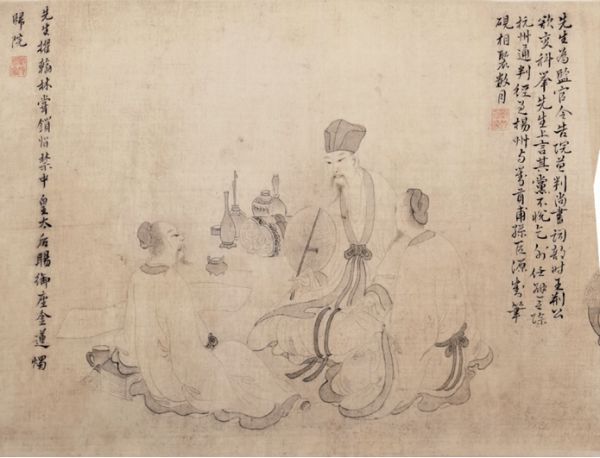 先生為監官令告院並判尚書祠部時王荊公
欲變科舉先生上言其黨不悅乞外任避之除
杭州通判經之楊州与劉貢甫孫巨源劉筆
硯相聚數月
先生擢翰林嘗鎖宿禁中皇太后賜御座金蓮燭
歸院